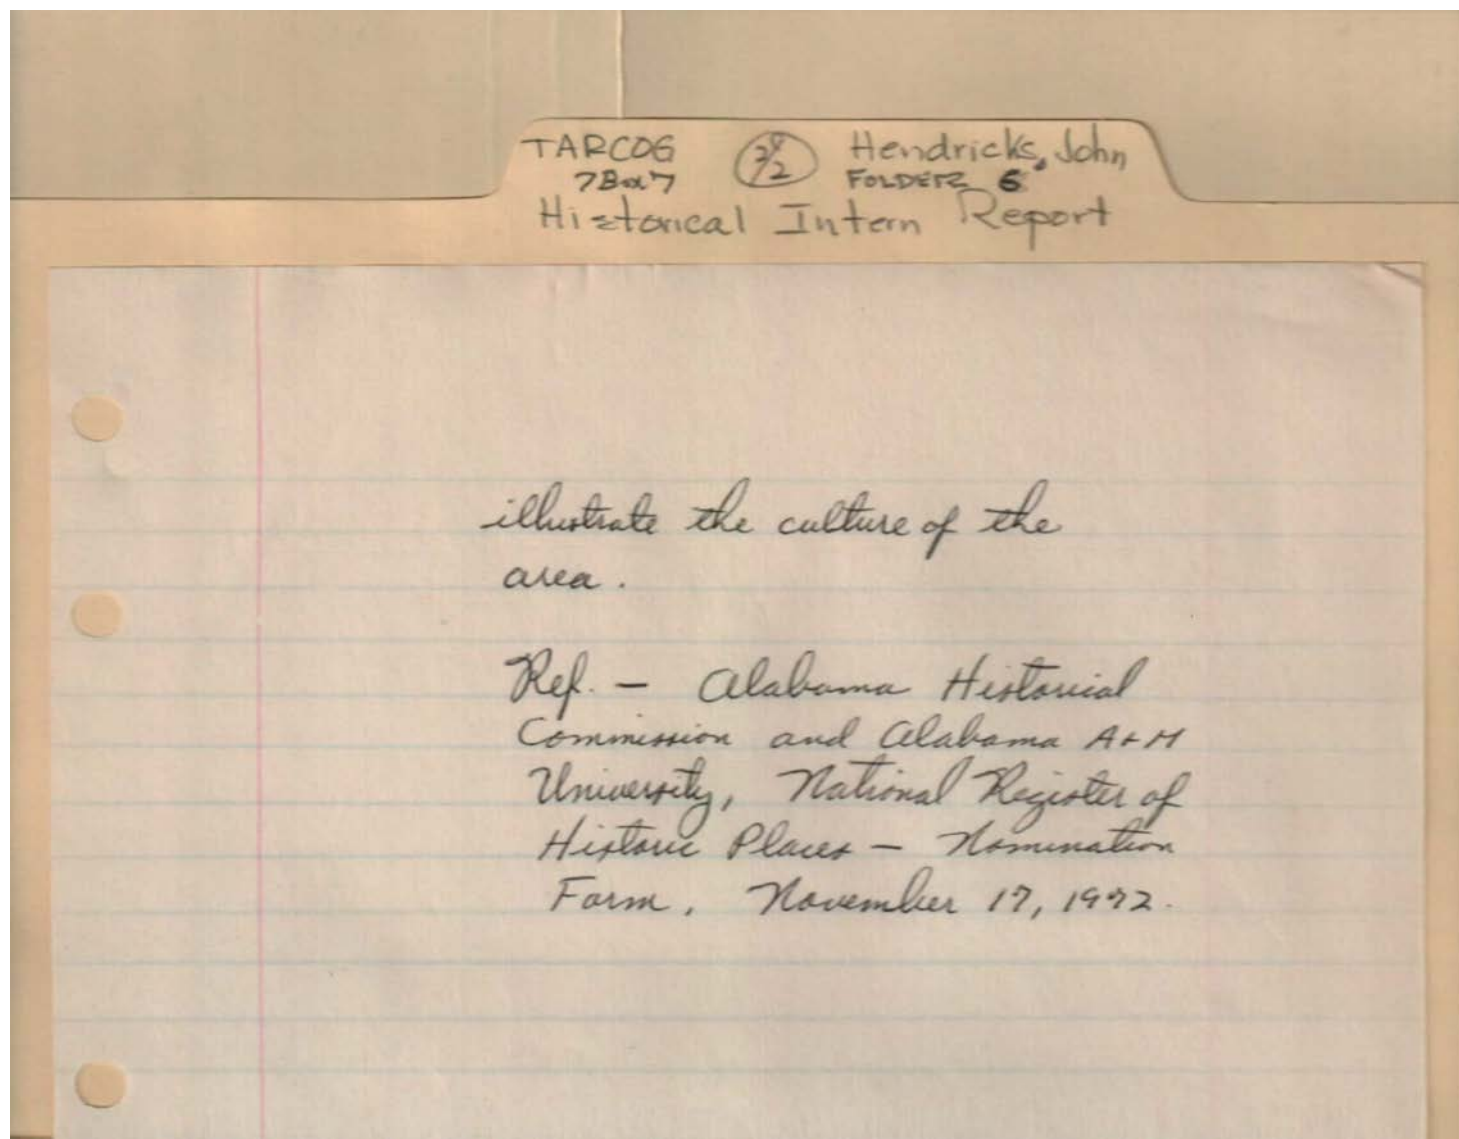 TARCOG
Hendricks, John
7Box7
FOLDER 6
Historical Intern Report
illustrate the culture of the
area.
Ref. — Alabama Historical
Commission and Alabama A+M
University, National Register of
Historic Places — Nomination
Form, November 17, 1972.